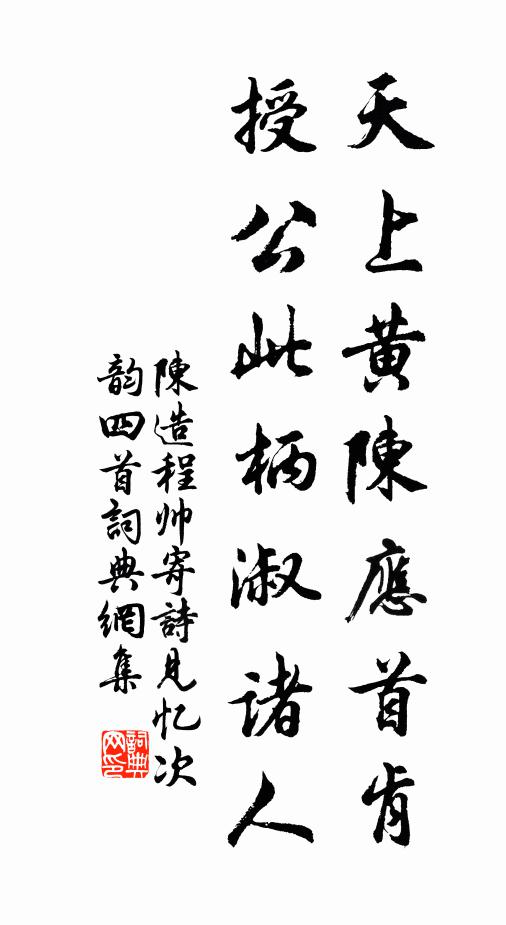 天上黄陳應首肯
授公此柄淑諸人
陳造程帅寄詩見忆次
韵四首詞典網集